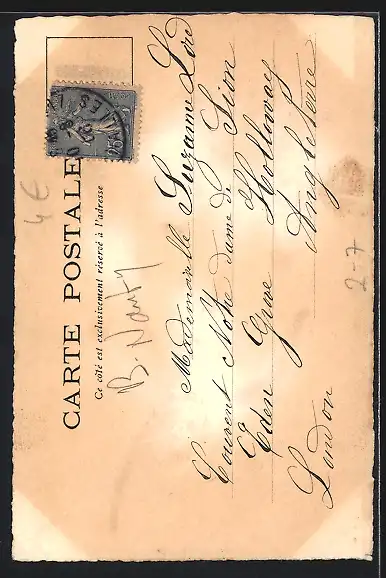 CARTE POSTALE
Ce côté est exclusivement réservé à l'adresse
25
4 €
B. Nanty
Mademoiselle Suzanne Liré
Couvent Notre dame de Sion
Eden Grove Holloway
London Angleterre
2-7